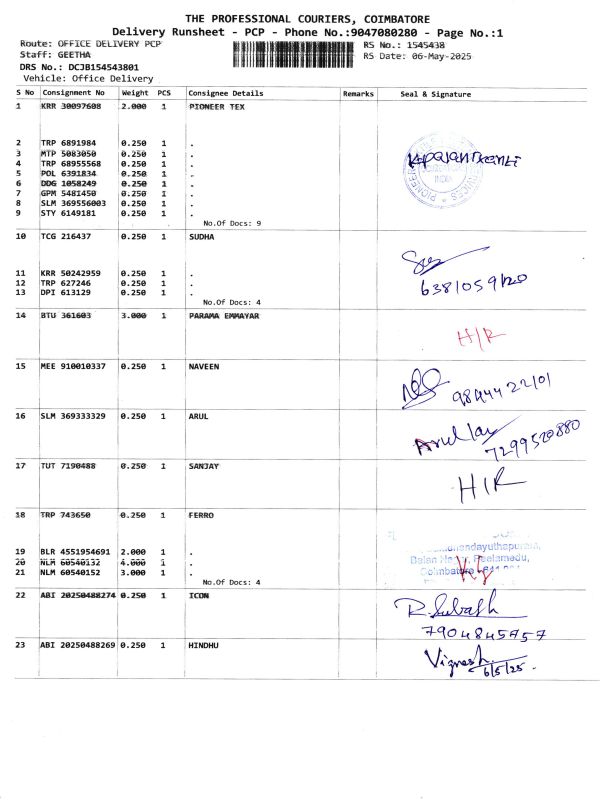 THE PROFESSIONAL COURIERS, COIMBATORE
Delivery Runsheet - PCP - Phone No.:9047080280 - Page No.:1
Route: OFFICE DELIVERY PCP RS No.: 1545438
Staff: GEETHA RS Date: 06-May-2025
DRS No.: DCJB154543801
Vehicle: Office Delivery
S No Consignment No Weight PCS Consignee Details Remarks Seal & Signature
1 KRR 30097608 2.000 1 PIONEER TEX
2 TRP 6891984 0.250 1 .
3 MTP 5083050 0.250 1 .
4 TRP 68955568 0.250 1 .
5 POL 6391834 0.250 1 .
6 DDG 1058249 0.250 1 .
7 GPM 5481450 0.250 1 .
8 SLM 369556003 0.250 1 .
9 STY 6149181 0.250 1 .
No.Of Docs: 9
10 TCG 216437 0.250 1 SUDHA
11 KRR 50242959 0.250 1 .
12 TRP 627246 0.250 1 .
13 DPI 613129 0.250 1 .
No.Of Docs: 4
14 BTU 361603 3.000 1 PARAMA EMMAYAR H/R
15 MEE 910010337 0.250 1 NAVEEN
9844422101
16 SLM 369333329 0.250 1 ARUL
7299520880
17 TUT 7190488 0.250 1 SANJAY H/R
18 TRP 743650 0.250 1 FERRO
19 BLR 4551954691 2.000 1 .
20 NLM 60540132 4.000 1 .
21 NLM 60540152 3.000 1 .
Peelamedu,
No.Of Docs: 4
22 ABI 20250488274 0.250 1 ICON R. Subash
7904845757
23 ABI 20250488269 0.250 1 HINDHU Vignesh
6/5/25.